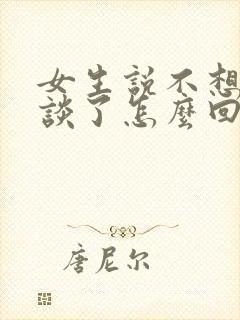 女生説不想
談了怎麼回
唐尼尔